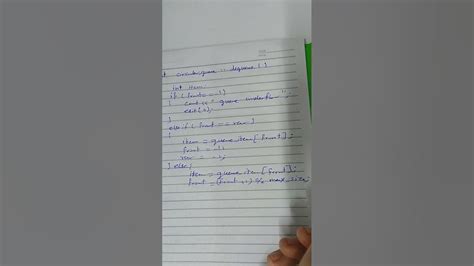 circularqueue :: dequeue ( )
int item
if ( front == -1)
{ cout << " queue underflow ";
exit(0);
}
else if ( front == rear )
{
item = queue_item[front];
front = -1;
rear = -1;
} else {
item = queue_item[front];
front = (front+1) % max_size